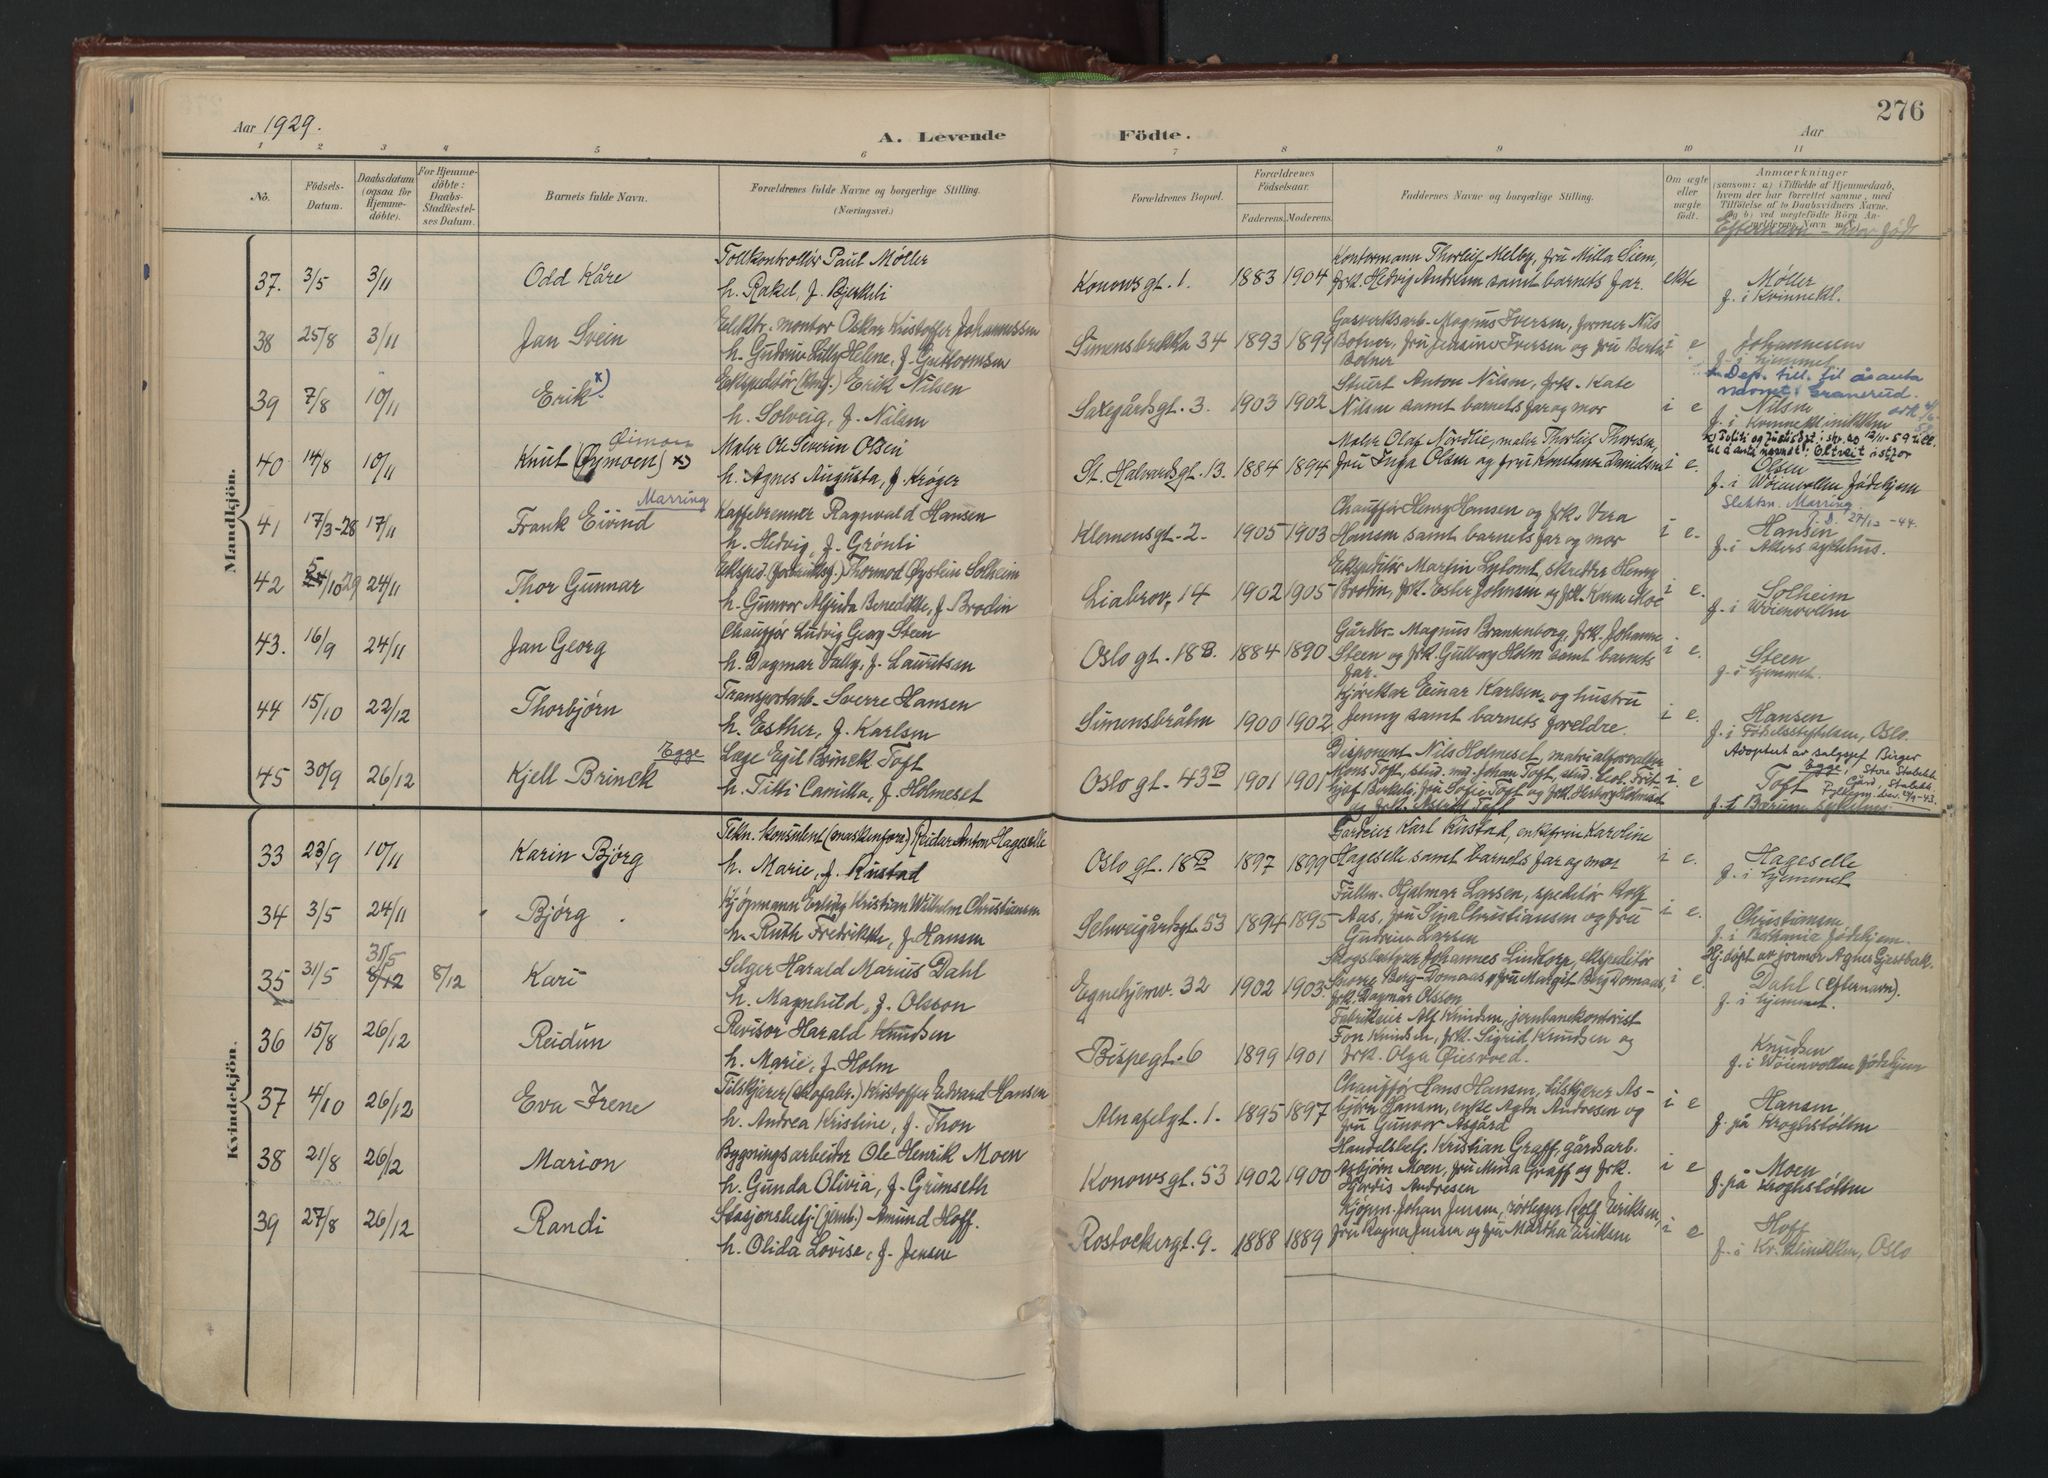 276
Aar 1929.
A. Levende Födte.
Aar
1 2 3 4 5 6 7 8 9 10 11
No.
Födsels-Datum.
Daabsdatum (ogsaa for Hjemme-döbte).
For Hjemme-döbte: Daabs-Stadfæstel-ses Datum.
Barnets fulde Navn.
Forældrenes fulde Navne og borgerlige Stilling. (Næringsvei.)
Forældrenes Bopæl.
Forældrenes Födselsaar.
Faderens. Moderens.
Faddernes Navne og borgerlige Stilling.
Om ægte eller uægte födt.
Anmærkninger
(saasom: a) i Tilfælde af Hjemmedaab, hvem der har forrettet samme, med Tilföielse af to Daabsvidners Navne.
Efternavn - hvor født
Mandkjön.
Tollkontrollør Paul Møller
Kontormann Thorleif Melby, fru Milla Siem,
37. 3/5 3/11 Odd Kåre h. Rakel, f. Bjerkeli Konowsgt. 1. 1883 1904 frk. Hedvig Andresen samt barnets far. ekte Møller
f. i Kvinnekl.
Elektr. montør Oskar Kristoffer Johannessen
Gasverksarb. Magnus Iversen, former Nils
38 25/8 3/11 Jan Svein h. Gudrun Lilly Helene, f. Guttormsen Simensbrekka 34 1893 1899 Botner, fru Jensine Iversen og fru Bertha Botner i e Johannesen
f. i hjemmet
Ekspeditør Erik Nilsen
x Dep. till. til å anta navnet: Granerud.
39 7/8 10/11 Erik x) h. Solveig, f. Nilsen Saxegårdsgt. 3. 1903 1902 Stuert Anton Nilsen, frk. Kate Nilsen samt barnets far og mor i e Nilsen
f. i Kvinneklinikken
Øimoen
Maler Ole Severin Olsen
Maler Olaf Nordlie, maler Thorleif Thoresen,
40 14/8 10/11 Knut (Øymoen) x) h. Agnes Augusta, f. Krøger St. Halvardsgt. 13. 1884 1894 fru Inga Olsen og fru Konstanse Danielsen i e. Olsen
f. i Wøienvollen fødehjem
Marring
Slektsn. Marring
J.D. 27/12-44.
Kaffebrenner Ragnvald Hansen
Chauffør Henry Hansen og frk. Vera
41 17/3-28 17/11 Frank Eivind h. Hedvig, f. Grønli Klemensgt. 2. 1905 1903 Hansen samt barnets far og mor i e. Hansen
f. i Akers sykehus.
Eksped. Thormod Øystein Solheim
Ekspeditør Martin Lytomt, skredder Henry
42 5/10 29 24/11 Thor Gunnar h. Gunvor Alfrida Benedikte, f. Brodin Liabrov. 14 1902 1905 Brodin, frk. Ester Johnsen og frk. Karen Moe i e. Solheim
f. i Wøienvollen
Chauffør Ludvig Georg Steen
Gårdbr. Magnus Brantenborg, frk. Johanne
43. 16/9 24/11 Jan Georg h. Dagmar Vally, f. Lauritsen Oslo gt. 18B. 1884 1890 Steen og frk. Gulborg Holm samt barnets far. i e. Steen
f. i hjemmet.
Transportarb. Sverre Hansen
Kjørekar Einar Karlsen og hustru
44 15/10 22/12 Thorbjørn h. Esther, f. Karlsen Simensbråten 1900 1902 Jenny samt barnets foreldre. i e. Hansen
f. i Fødselsstiftelsen, Oslo.
Egge
Adoptert av salgssjef Birger Egge, Store Stabekk Gård, Stabekk
Læge Egil Brinck Toft
Disponent Nils Holmeset, materialforvalter
45 30/9 26/12 Kjell Brinck h. Titti Camilla, f. Holmeset Oslo gt. 43B 1901 1901 Mons Toft, stud. med. Johan Toft, stud. teol. Fritjof Berkeli, fru Sofie Toft og frk. Herborg Holmeset og frk. Astrid Toft i e Toft
f. i Bærum sykehus.
Kvindekjön.
Tekn. konsulent Reidar Anton Hageselle
Gardeier Karl Rustad, enkefrue Karoline
33 23/9 10/11 Karin Bjørg h. Marie, f. Rustad Oslo gt. 18B 1897 1899 Hageselle samt barnets far og mor i e. Hageselle
f. i hjemmet
Kjøpmann Erling Kristian Wilhelm Christiansen
Fullm. Hjalmar Larsen, speditør Rolf
34 3/5 24/11 Bjørg h. Ruth Fredrikke, f. Hansen Schweigårdsgt. 53 1894 1895 Aas, fru Sina Christiansen og fru Gudrun Larsen i e. Christiansen
f. i Betania fødehjem.
Hj. døpt av jormor Agnes Gastbak.
Selger Harald Marius Dahl
Skogsbetyrer Johannes Lindtorp, ekspeditør
35 31/5 31/5 8/12 8/12 Kari h. Magnhild, f. Olsson Egnehjemv. 32 1902 1903. Snorre Berg-Domaas, fru Margit Berg Domaas, frk. Dagmar Olsson i e. Dahl (efternavn).
f. i hjemmet.
Revisor Harald Knudsen
Fabrikeier Alf Knudsen, jernbanekontorist
36 15/8 26/12 Reidun h. Marie, f. Holm Bispegt. 6 1899 1901 Fon Knudsen, frk. Sigrid Knudsen og frk. Olga Qiesvved. Knudsen
f. i Wøienvollen fødehjem
Tilskjærer (skofabr.) Kristoffer Edvard Hansen
Chauffør Hans Hansen, tilskjerer As-
37 4/10 26/12 Eva Irene h. Andrea Kristine, f. Thon Alnafetgt. 1. 1895 1897 bjørn Hansen, enke Agda Andresen og fru Gunvor Asgård i e Hansen
f. på Kroghstøtten
Bygningsarbeider Ole Henrik Moen
Handelsbetj. Kristian Graff, gårdsarb.
38 21/8 26/2 Marion h. Gunda Olivia, f. Grimseth Konowsgt. 53 1902 1900 Asbjørn Moen, fru Mina Graff og frk. Hjørdis Andresen i e Moen
f. på Kroghstøtten
Stasjonsbetj. (jernb.) Amund Hoff.
Kjøpm. Johan Jensen, rørlegger Rolf Eriksen,
39 27/8 26/12 Randi h. Olida Lovise, f. Jensen Rostockergt. 9. 1888 1889 fru Ragna Jensen og fru Martha Eriksen i e Hoff
f. i Kv. klinikken, Oslo